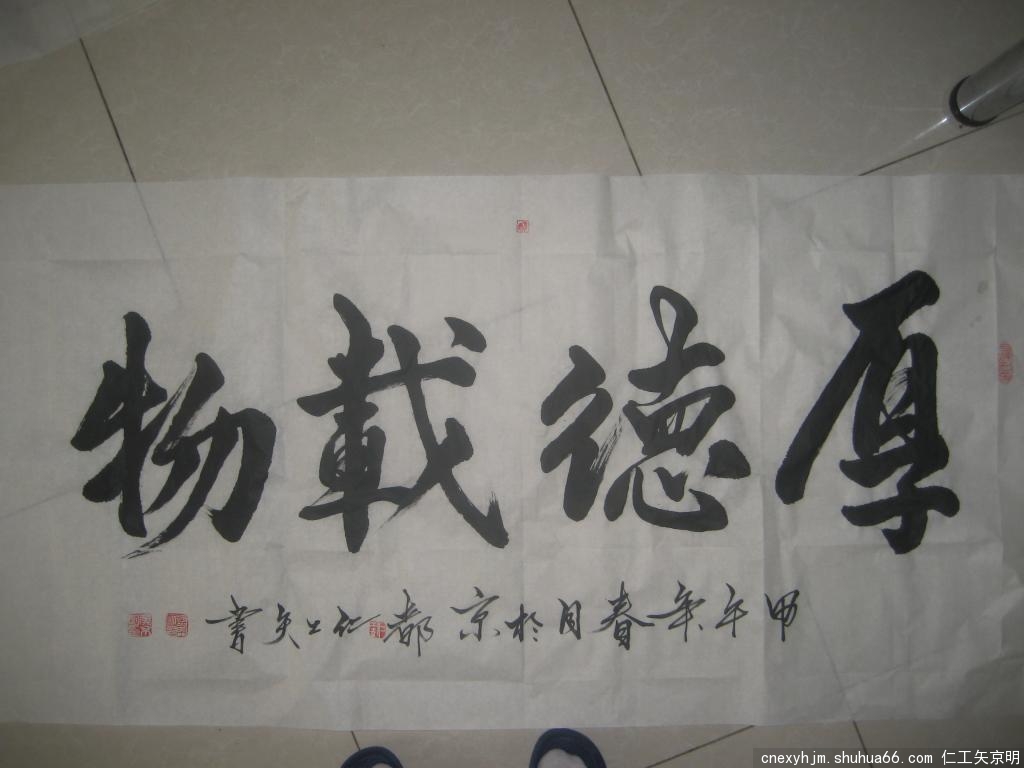 厚德載物
甲午年春月於京都仁工矢書
cnexyhjm.shuhua66.com 仁工矢京明